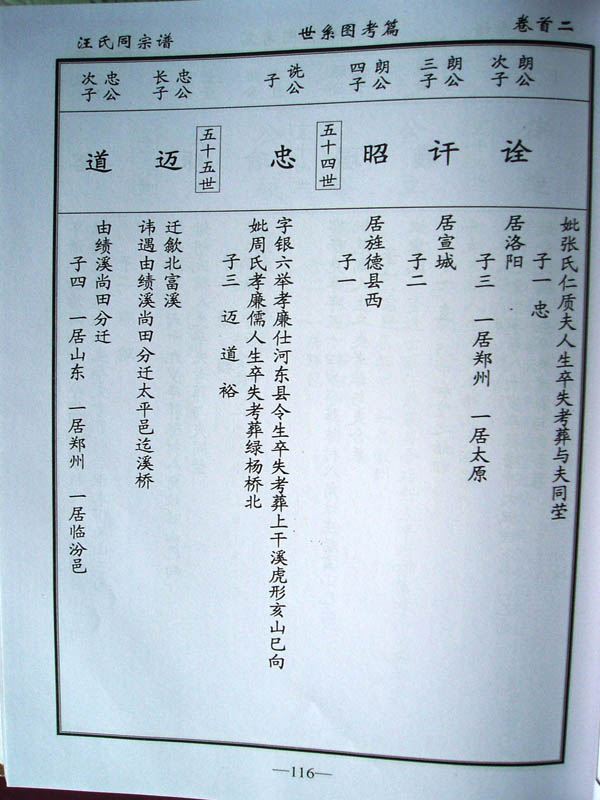 卷首二
世系图考篇
汪氏同宗谱
妣张氏仁质夫人生卒失考葬与夫同茔
子一 忠
朗公
次子
诠
居洛阳
子三 一居郑州 一居太原
朗公
三子
讦
居宣城
子二
朗公
四子
昭
居旌德县西
子一
五十四世
诜公
子
忠
字银六举孝廉仕河东县令生卒失考葬上干溪虎形亥山巳向
妣周氏孝廉儒人生卒失考葬绿杨桥北
子三 迈 道 裕
五十五世
忠公
长子
迈
迁歙北富溪
讳遇由绩溪尚田分迁太平邑迄溪桥
忠公
次子
道
由绩溪尚田分迁
子四 一居山东 一居郑州 一居临汾邑
—116—